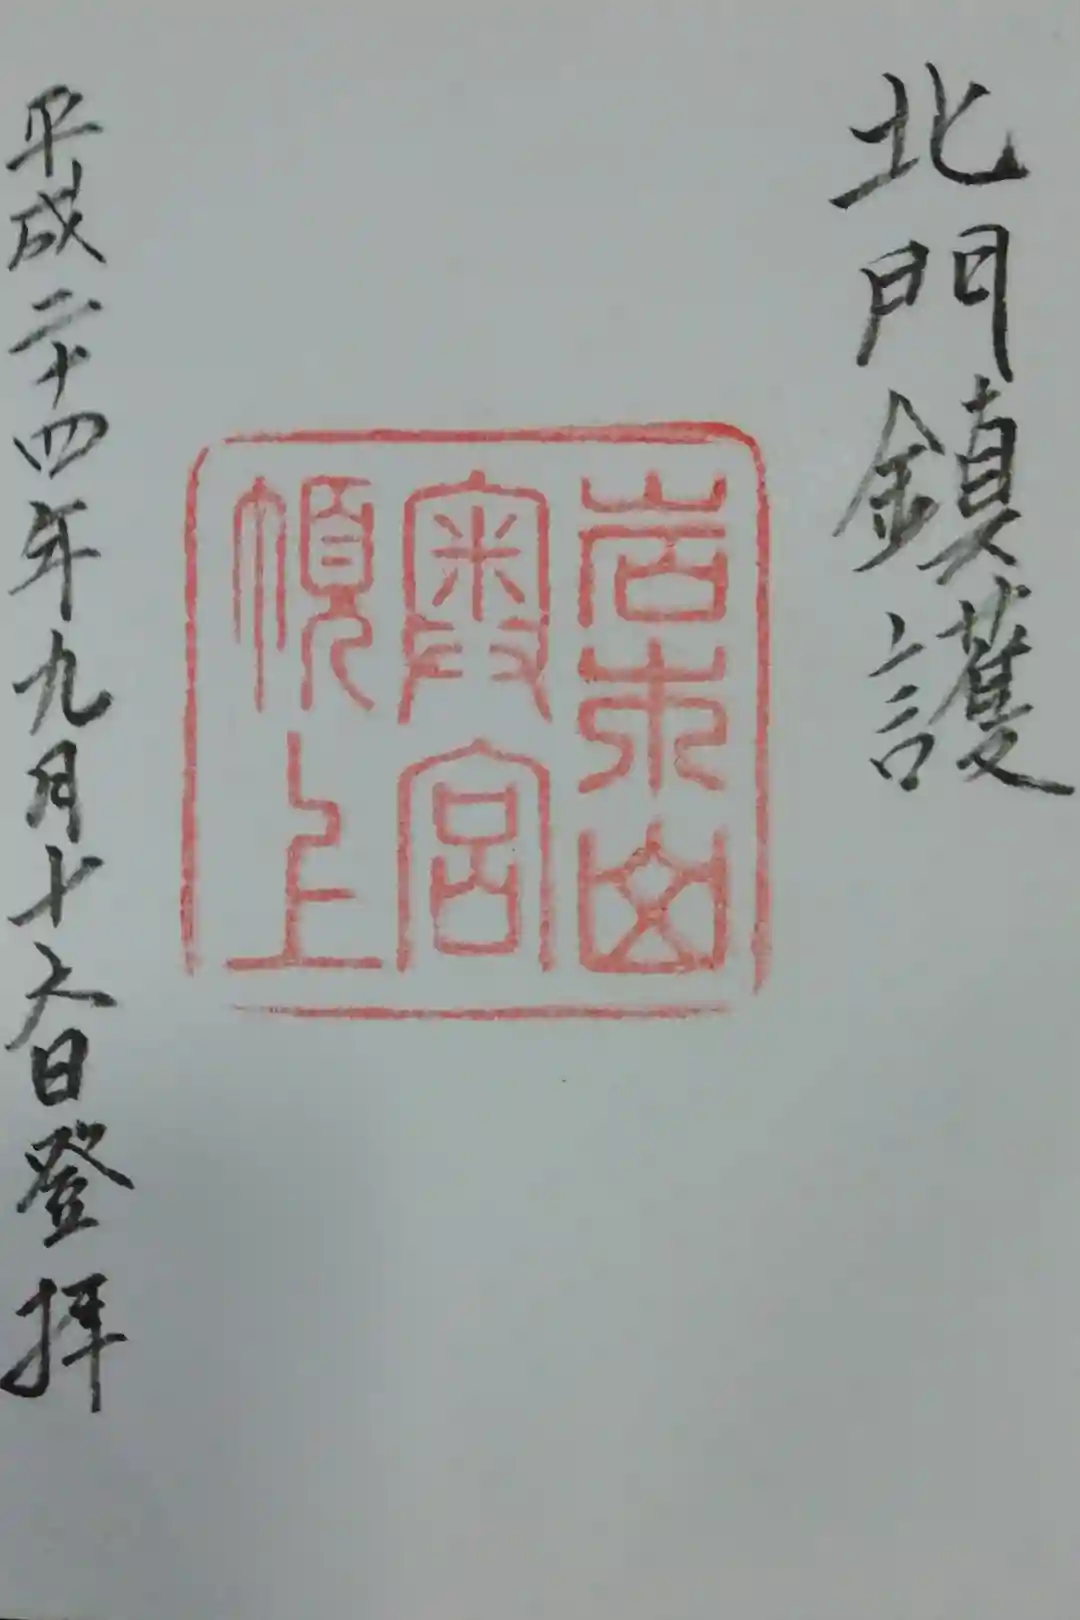 北門鎮護
岩木山
奥宮
頂上
平成二十四年九月十六日登拝